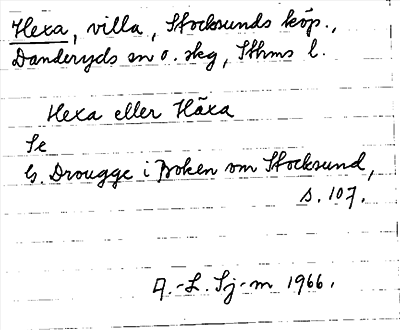 Hexa, villa, Stocksunds köp.,
Danderyds sn o. skg, Sthms l.
Hexa eller Häxa
Se
G. Drougge i Boken om Stocksund,
s. 107.
A.-L. Sj-m 1966.